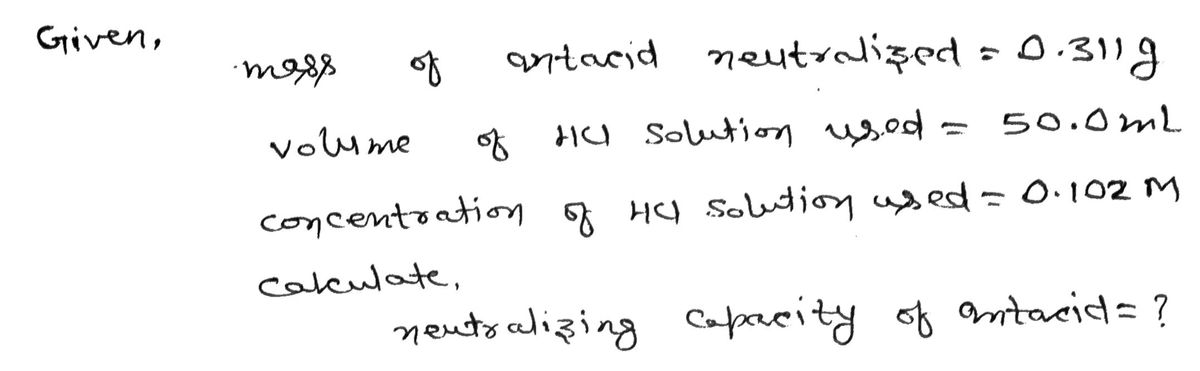 Given,
mass of antacid neutralized = 0.311g
volume of HCl solution used = 50.0mL
concentration of HCl solution used = 0.102 M
calculate,
neutralizing capacity of antacid = ?